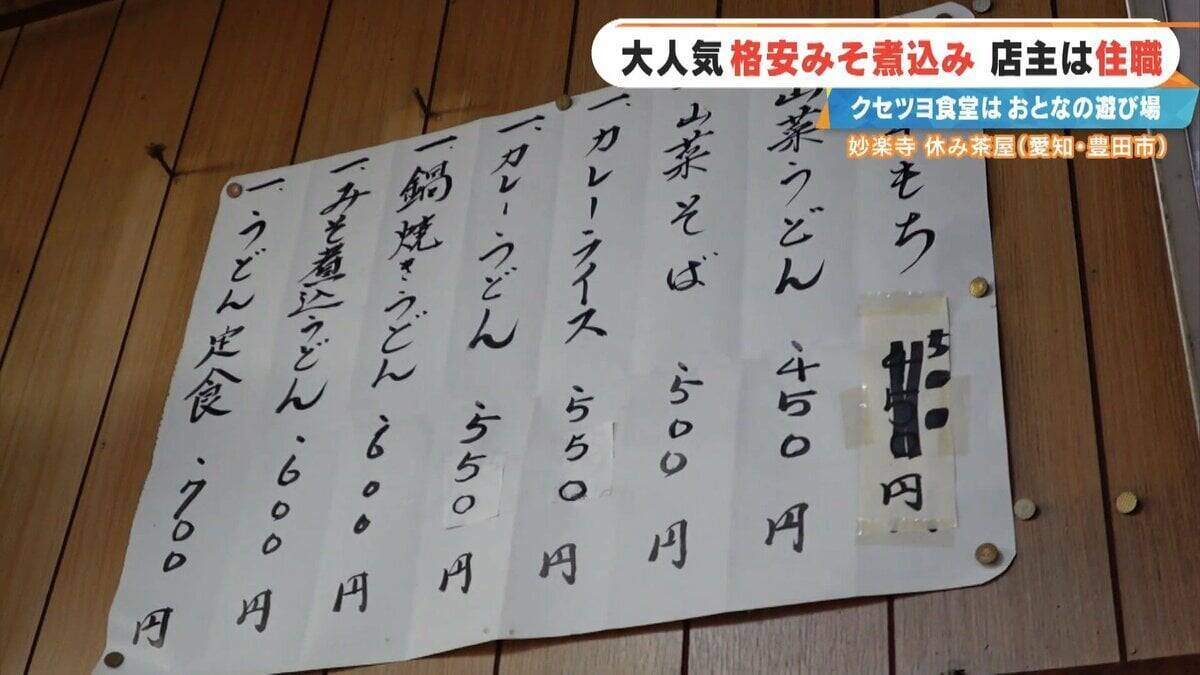 大人気 格安みそ煮込み 店主は住職
クセツヨ食堂は おとなの遊び場
妙楽寺 休み茶屋(愛知・豊田市)
もち 円
山菜うどん 450円
山菜そば 500円
一、カレーライス 550円
一、カレーうどん 550円
一、鍋焼きうどん 600円
一、みそ煮込うどん 600円
一、うどん定食 700円